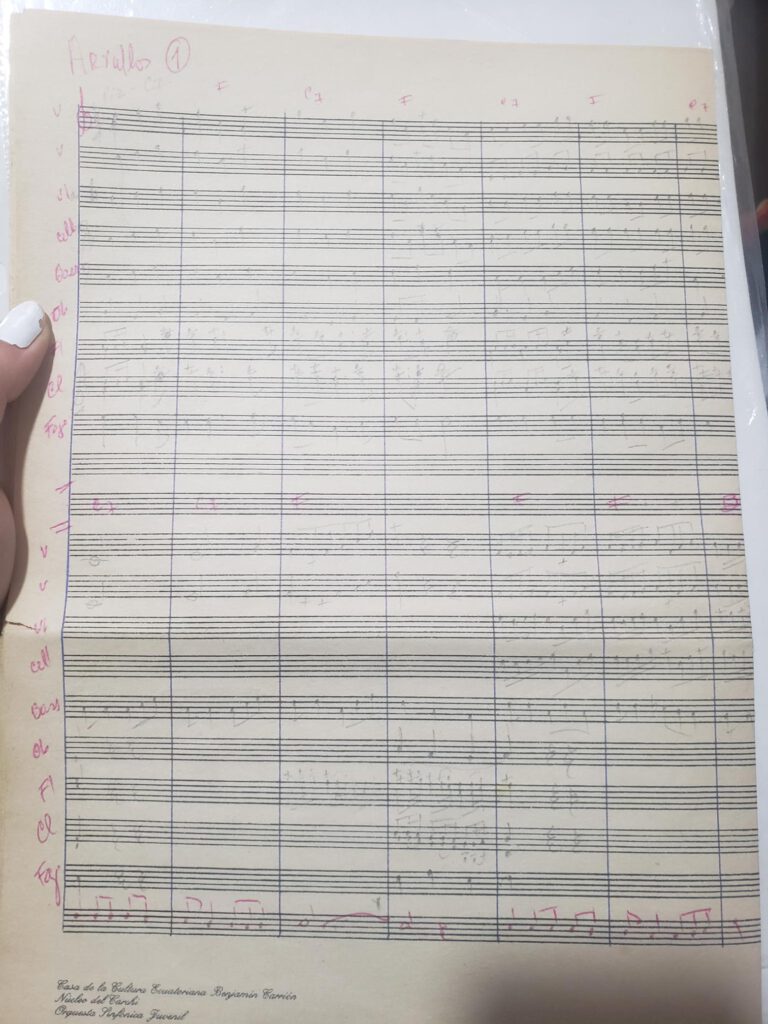 ①
F C7 F C7 F C7
V
V
Cell
Bass
Ob
Fl
Cl
Fag
C7 C7 F F F
V
V
Cell
Bass
Ob
Fl
Cl
Fag
Casa de la Cultura Ecuatoriana Benjamín Carrión
Núcleo del Carchi
Orquesta Sinfónica Juvenil